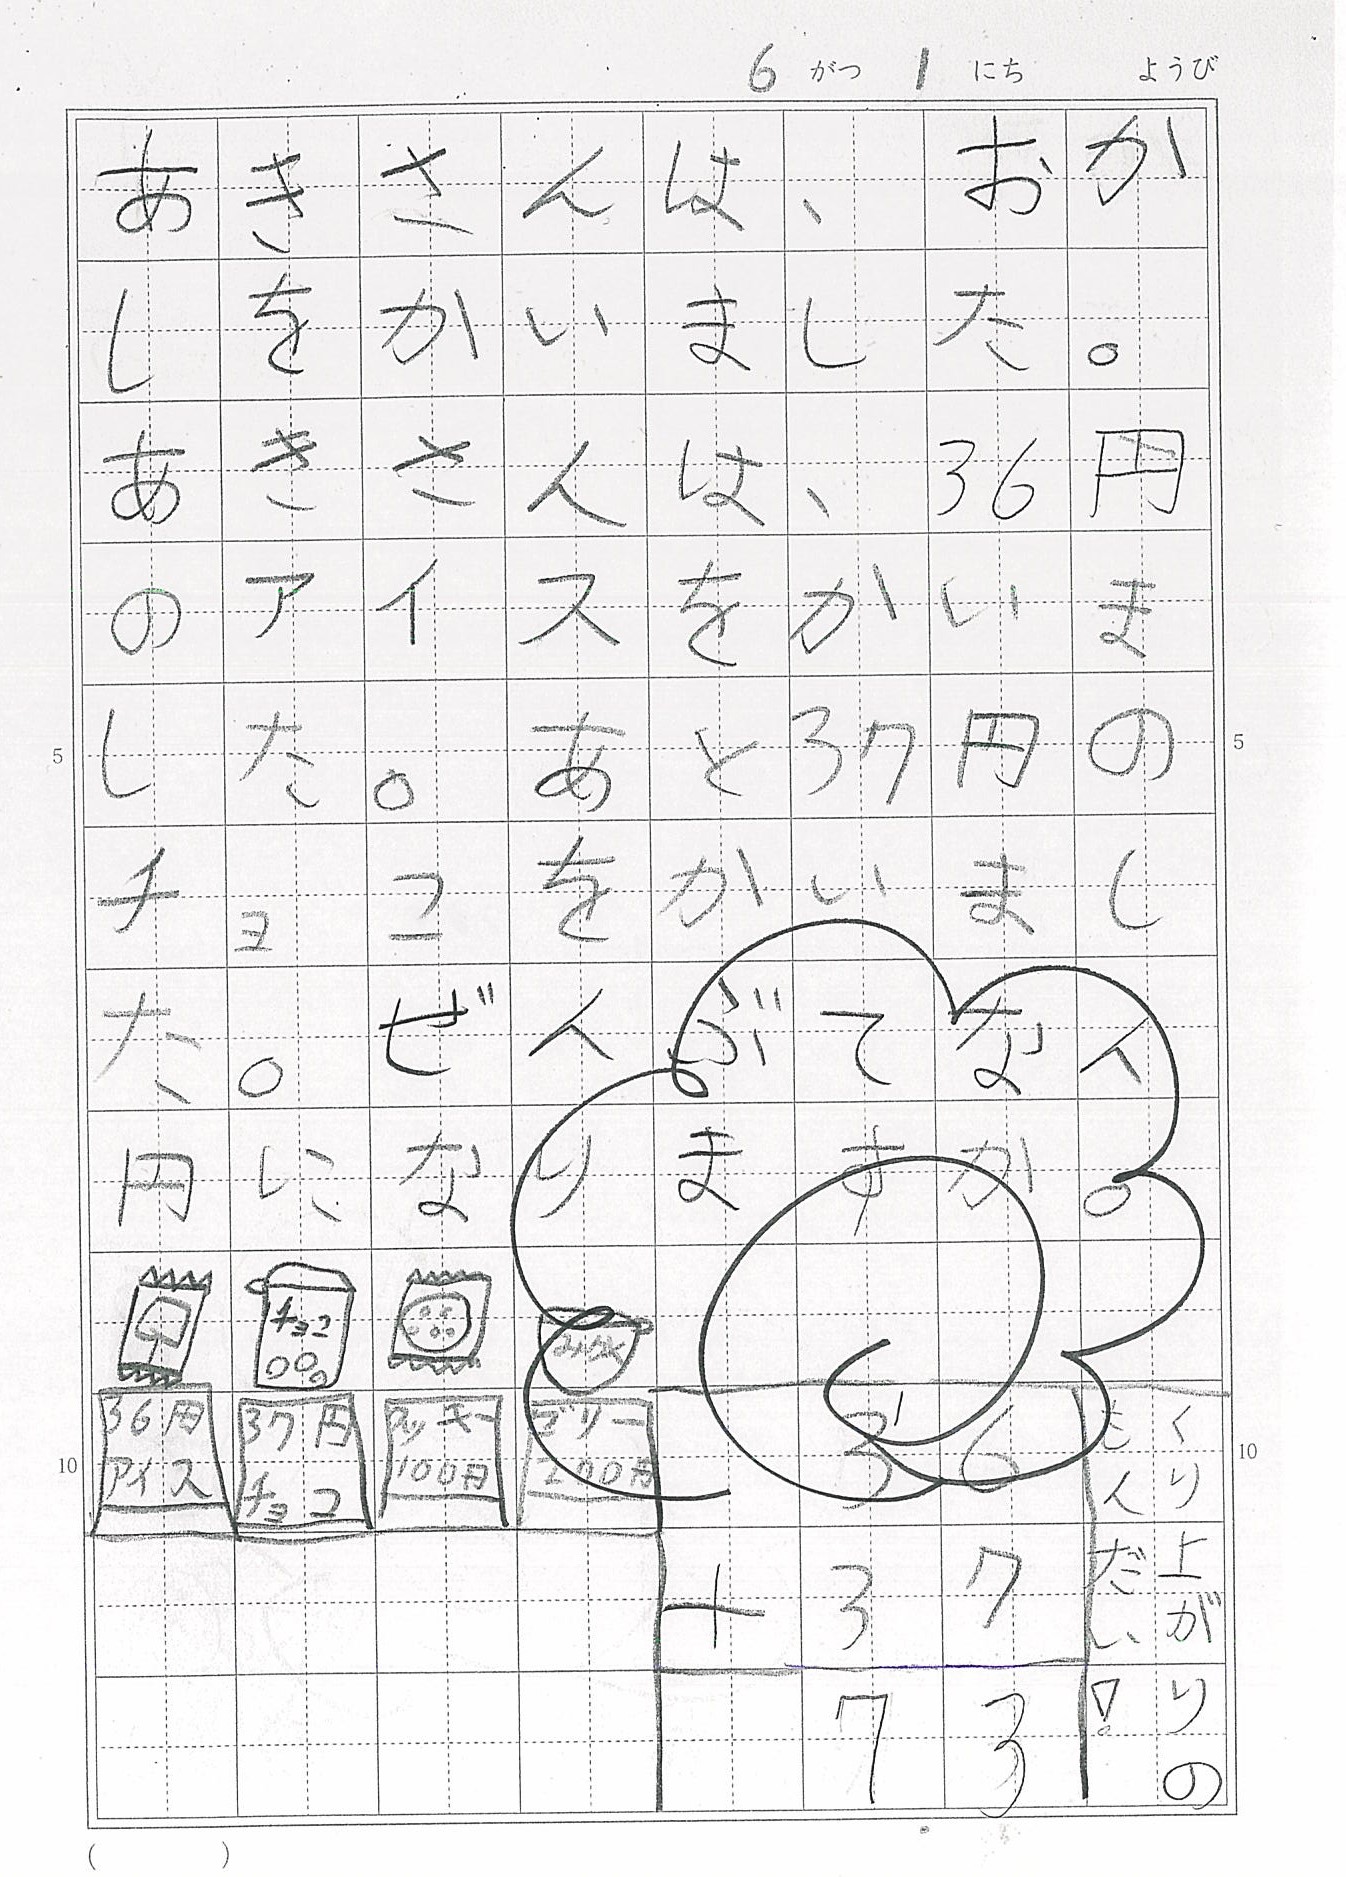 6 がつ 1 にち ようび
あきさんは、おか
しをかいました。
あきさんは、36円
のアイスをかいま
した。あと37円の
チョコをかいまし
た。ぜんぶてなん
円になりますか。
チョコ
36円 アイス
37円 チョコ
100円
ゼリー 200円
36
+37
73
くり上がりの
もんだい!
5
5
10
10
( )